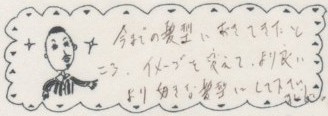 今までの髪型にあきてきたと
ころ、イメージを変えて、より良い
より好きな髪型にして下さい